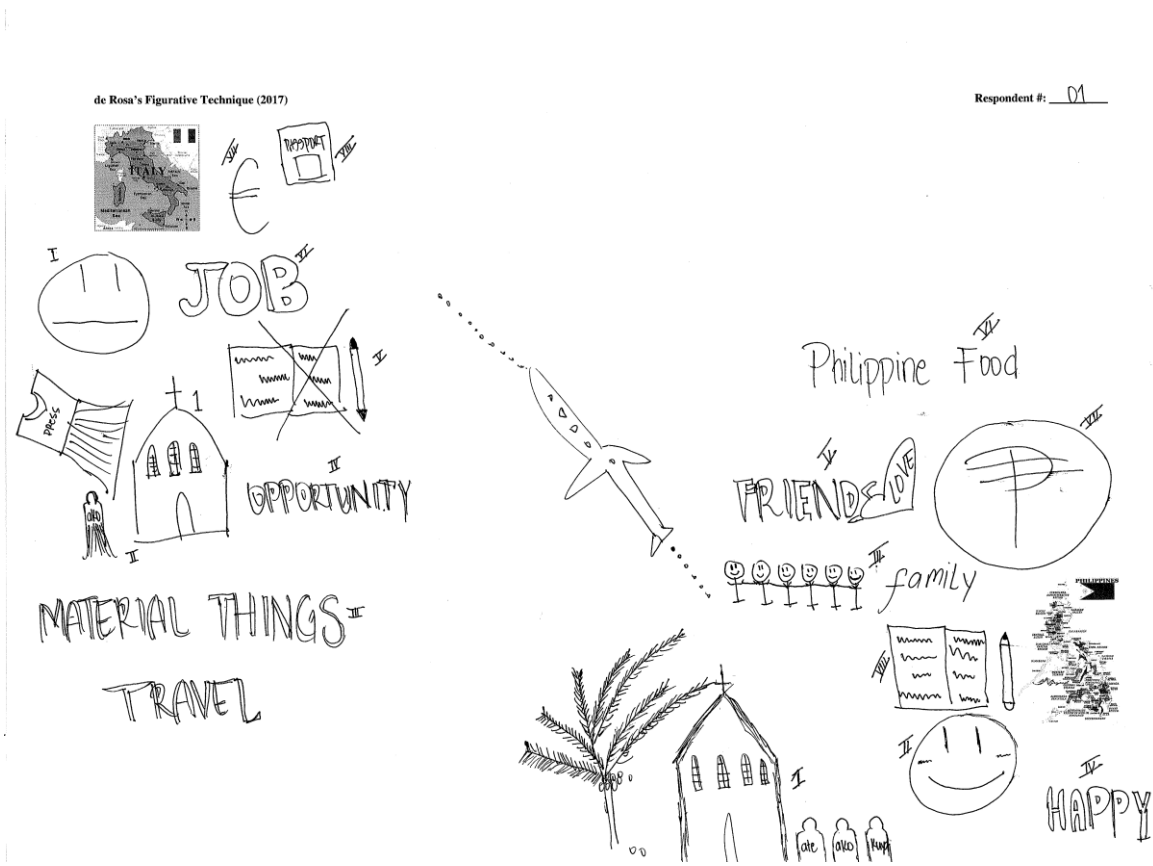 de Rosa's Figurative Technique (2017)
Respondent #: 01
ITALY
VII
€
PASSPORT
VIII
I
JOB
VI
V
PRESS
1
IV
OPPORTUNITY
ako
II
MATERIAL THINGS III
TRAVEL
VI
Philippine Food
V
FRIENDS
LOVE
VII
III
family
PHILIPPINES
VIII
II
I
IV
HAPPY
ate
ako
kuya